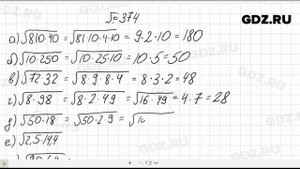 GDZ.RU
№374
а) √810·40 = √81·10·4·10 = 9·2·10 = 180
б) √10·250 = √10·25·10 = 10·5 = 50
в) √72·32 = √8·9·8·4 = 8·3·2 = 48
г) √8·98 = √8·2·49 = √16·49 = 4·7 = 28
д) √50·18 = √50·2·9 = √1
е) √2,5·14,4
GDZ.RU